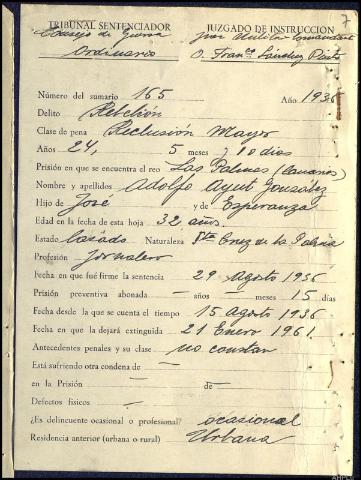 7
TRIBUNAL SENTENCIADOR
Consejo de Guerra
Ordinario
JUZGADO DE INSTRUCCION
Juez Militar Comandante
D. Franco Sánchez Pinto
Número del sumario 165 Año 1936
Delito Rebelión
Clase de pena Reclusión Mayor
Años 24, 5 meses y 10 días
Prisión en que se encuentra el reo Las Palmas (Canarias)
Nombre y apellidos Adolfo Ayut González
Hijo de José y de Esperanza
Edad en la fecha de esta hoja 32 años.
Estado Casado Naturaleza Sta Cruz de la Palma
Profesión Jornalero
Fecha en que fué firme la sentencia 29 Agosto 1936
Prisión preventiva abonada — años meses 15 días
Fecha desde la que se cuenta el tiempo 15 Agosto 1936
Fecha en que la dejará extinguida 21 Enero 1961
Antecedentes penales y su clase no constan
Está sufriendo otra condena de —
en la Prisión — de —
Defectos físicos —
¿Es delincuente ocasional o profesional? ocasional
Residencia anterior (urbana o rural) Urbana